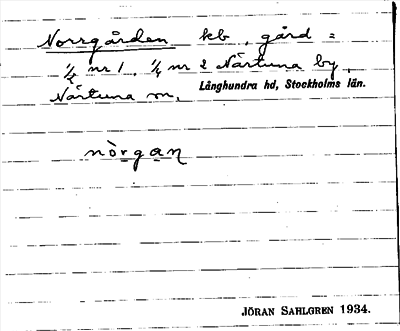 Norrgården kb, gård =
1/2 nr 1, 1/4 nr 2 Närtuna by,
Närtuna sn, Långhundra hd, Stockholms län.
nòrgan
JÖRAN SAHLGREN 1934.